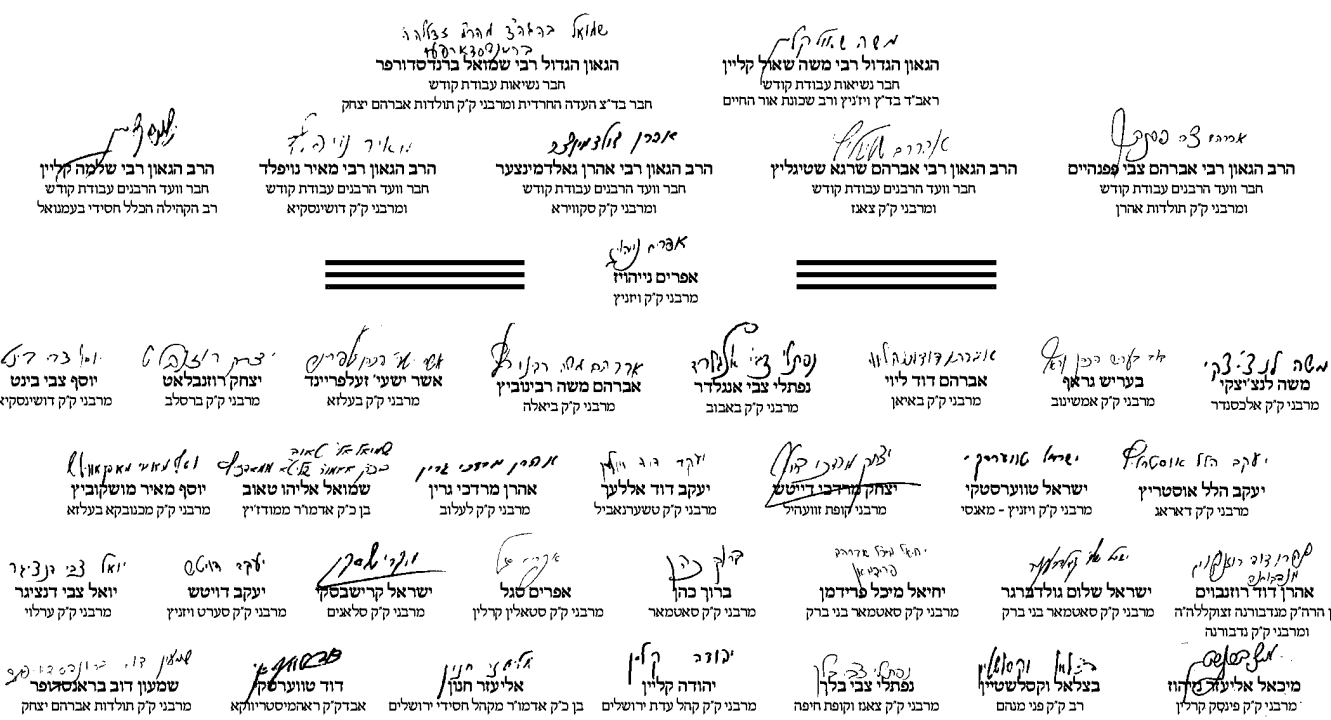 הגאון הגדול רבי משה שאול קליין
חבר נשיאות עבודת קודש
ראב"ד בד"ץ ויז'ניץ ורב שכונת אור החיים
הגאון הגדול רבי שמואל ברנדסדורפר
חבר נשיאות עבודת קודש
חבר בד"צ העדה החרדית ומרבני ק"ק תולדות אברהם יצחק
הרב הגאון רבי אברהם צבי פפנהיים
חבר וועד הרבנים עבודת קודש
ומרבני ק"ק תולדות אהרן
הרב הגאון רבי אברהם שרגא שטיגליץ
חבר וועד הרבנים עבודת קודש
ומרבני ק"ק צאנז
הרב הגאון רבי אהרן גאלדמינצער
חבר וועד הרבנים עבודת קודש
ומרבני ק"ק סקווירא
הרב הגאון רבי מאיר נויפלד
חבר וועד הרבנים עבודת קודש
ומרבני ק"ק דושינסקיא
הרב הגאון רבי שלמה קליין
חבר וועד הרבנים עבודת קודש
רב הקהילה הכלל חסידי בעמנואל
אפרים נייהויז
אפרים נייהויז
מרבני ק"ק ויזניץ
משה לנצ'יצקי
משה לנצ'יצקי
מרבני ק"ק אלכסנדר
בעריש גראף
מרבני ק"ק אמשינוב
אברהם דוד ליוי
מרבני ק"ק באיאן
נפתלי צבי אנגלדר
מרבני ק"ק באבוב
אברהם משה רבינוביץ
מרבני ק"ק ביאלה
אשר ישעי' זעלפריינד
מרבני ק"ק בעלזא
יצחק רוזנבלאט
מרבני ק"ק ברסלב
יוסף צבי בינט
מרבני ק"ק דושינסקיא
יעקב הלל אוסטריץ
מרבני ק"ק דאראג
ישראל טווערסקי
ישראל טווערסטקי
מרבני ק"ק ויזניץ - מאנסי
יצחק מרדכי דייטש
מרבני קופת זוועהיל
יעקב דוד אללעך
מרבני ק"ק טשערנאביל
אהרן מרדכי גרין
אהרן מרדכי גרין
מרבני ק"ק לעלוב
שמואל אליהו טאוב
בן כ"ק אדמו"ר ממודז'יץ
יוסף מאיר מושקוביץ
מרבני ק"ק מכנובקא בעלזא
אהרן דוד רוזנבוים
ן הרה"ק מנדבורנה זצוקללה"ה
ומרבני ק"ק נדבורנה
ישראל שלום גולדברגר
מרבני ק"ק סאטמאר בני ברק
יחיאל מיכל פרידמן
מרבני ק"ק סאטמאר בני ברק
ברוך כהן
ברוך כהן
מרבני ק"ק סאטמאר
אפרים סגל
מרבני ק"ק סטאלין קרלין
ישראל קרישבסקי
מרבני ק"ק סלאנים
יעקב דויטש
יעקב דויטש
מרבני ק"ק סערט ויזניץ
יואל צבי דנציגר
יואל צבי דנציגר
מרבני ק"ק ערלוי
מיכאל אליעזר נויהוז
מרבני ק"ק פינסק קרלין
בצלאל וקסלשטיין
רב ק"ק פני מנהם
נפתלי צבי בלך
מרבני ק"ק צאנז וקופת חיפה
יהודה קליין
יהודה קליין
מרבני ק"ק קהל עדת ירושלים
אליעזר חנון
בן כ"ק אדמו"ר מקהל חסידי ירושלים
דוד טווערסקי
אבדק"ק ראהמיסטריווקא
שמעון דוב בראנסדופר
מרבני ק"ק תולדות אברהם יצחק